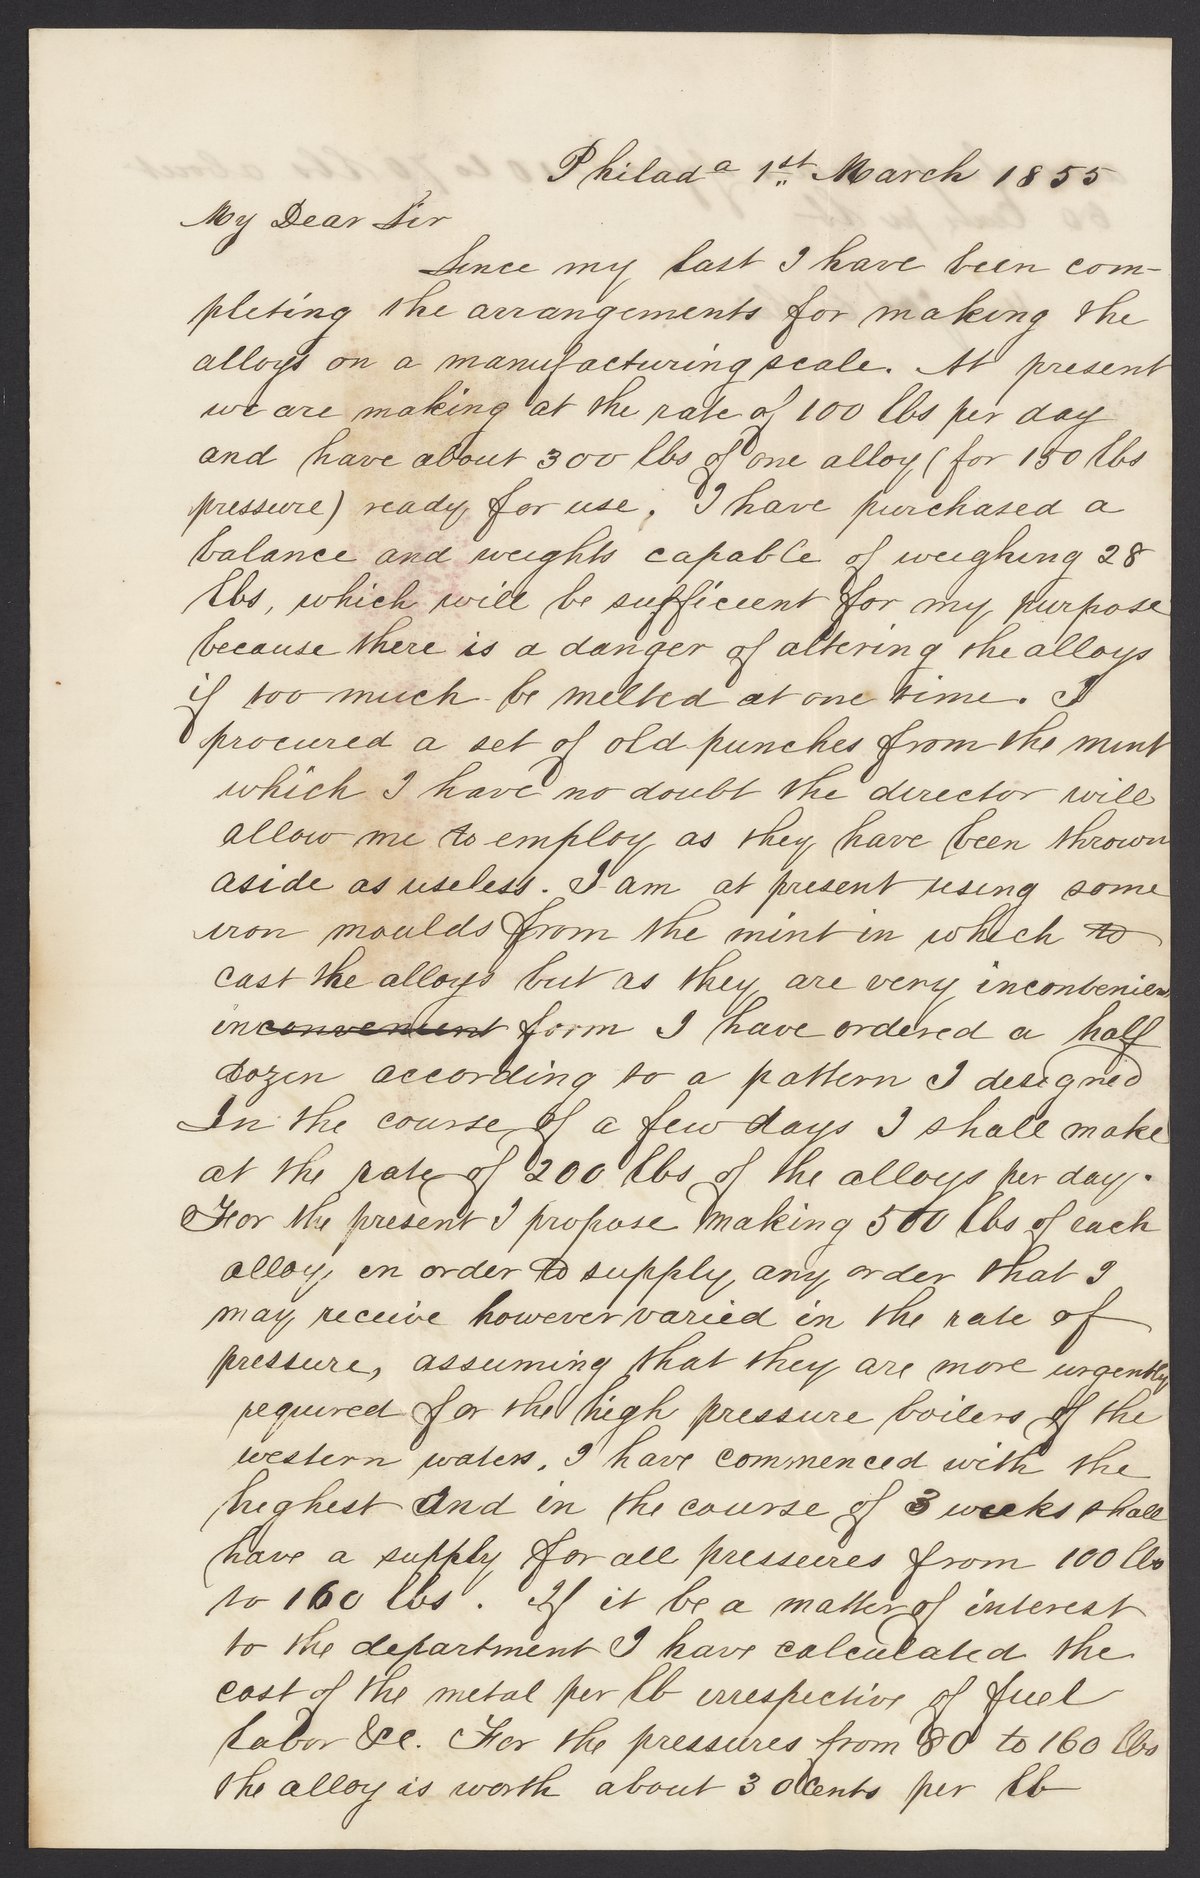 Philada 1st March 1855
My Dear Sir
Since my last I have been com-
pleting the arrangements for making the
alloys on a manufacturing scale. At present
we are making at the rate of 100 lbs per day
and have about 300 lbs of one alloy (for 150 lbs
pressure) ready for use. I have purchased a
balance and weights capable of weighing 28
lbs, which will be sufficient for my purpose
because there is a danger of altering the alloys
if too much be melted at one time. I
procured a set of old punches from the mint
which I have no doubt the director will
allow me to employ as they have been thrown
aside as useless. I am at present using some
iron moulds from the mint in which to
cast the alloys but as they are very inconvenient
inconvenient form I have ordered a half
dozen according to a pattern I designed
In the course of a few days I shall make
at the rate of 200 lbs of the alloys per day.
For the present I propose making 500 lbs of each
alloy in order to supply any order that I
may receive however varied in the rate of
pressure, assuming that they are more urgently
required for the high pressure boilers of the
western waters. I have commenced with the
highest and in the course of 3 weeks shall
have a supply for all pressures from 100 lbs
to 160 lbs. If it be a matter of interest
to the department I have calculated the
cost of the metal per lb irrespective of fuel
labor &c. For the pressures from 80 to 160 lbs
the alloy is worth about 30 Cents per lb